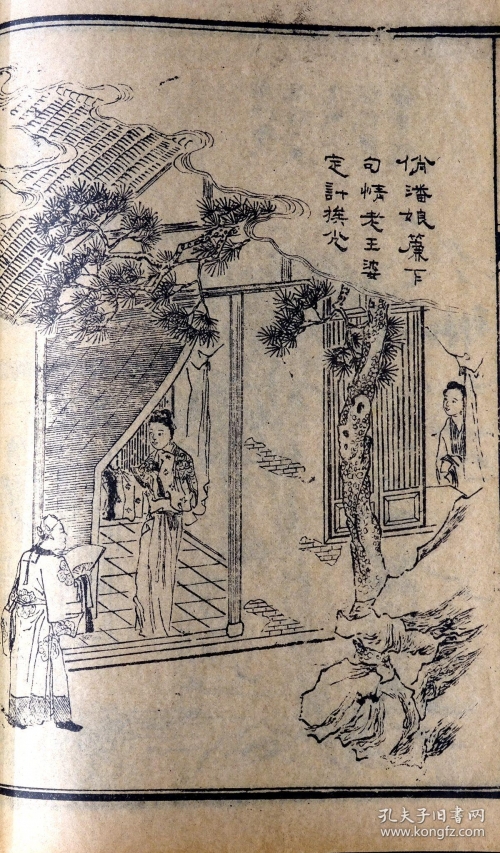 俏潘娘簾下
句情老王婆
定計挨光
孔夫子旧书网
www.kongfz.com